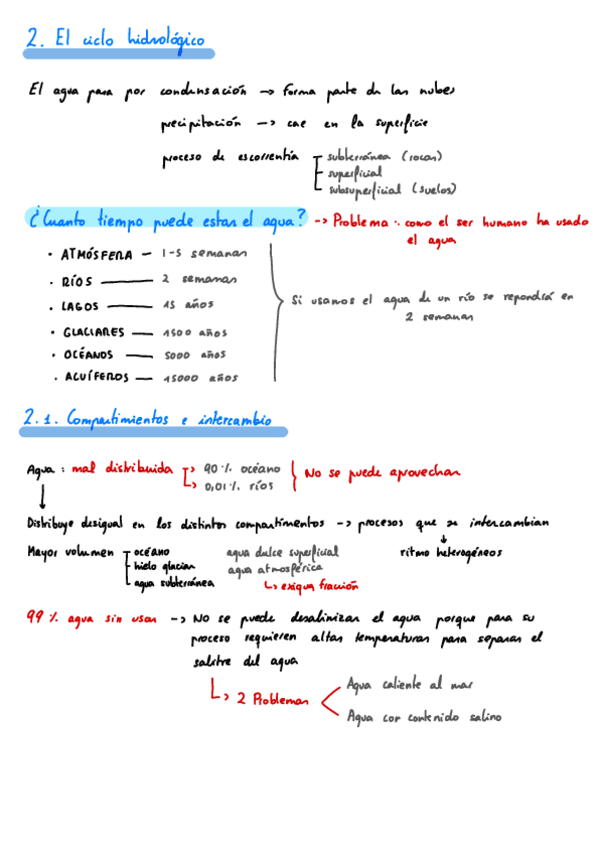 2. El ciclo hidrológico
El agua pasa por condensación → forma parte de las nubes
precipitación → cae en la superficie
proceso de escorrentía subterránea (rocas)
superficial
subsuperficial (suelos)
¿Cuanto tiempo puede estar el agua? → Problema: como el ser humano ha usado
el agua
• ATMÓSFERA — 1-5 semanas
• RÍOS — 2 semanas
• LAGOS — 15 años
Si usamos el agua de un río se repondrá en
2 semanas
• GLACIARES — 1500 años
• OCÉANOS — 5000 años
• ACUÍFEROS — 15000 años
2.1. Compartimientos e intercambio
Agua: mal distribuida → 90% océano
↳ 0,01% ríos
No se puede aprovechar
Distribuye desigual en los distintos compartimentos → procesos que se intercambian
Mayor volumen océano agua dulce superficial ritmo heterogéneos
hielo glaciar agua atmosférica
agua subterránea ↳ exigua fracción
99% agua sin usar → No se puede desalinizar el agua porque para su
proceso requieren altas temperaturas para separar el
salitre del agua
↳ 2 Problemas Agua caliente al mar
Agua cor contenido salino